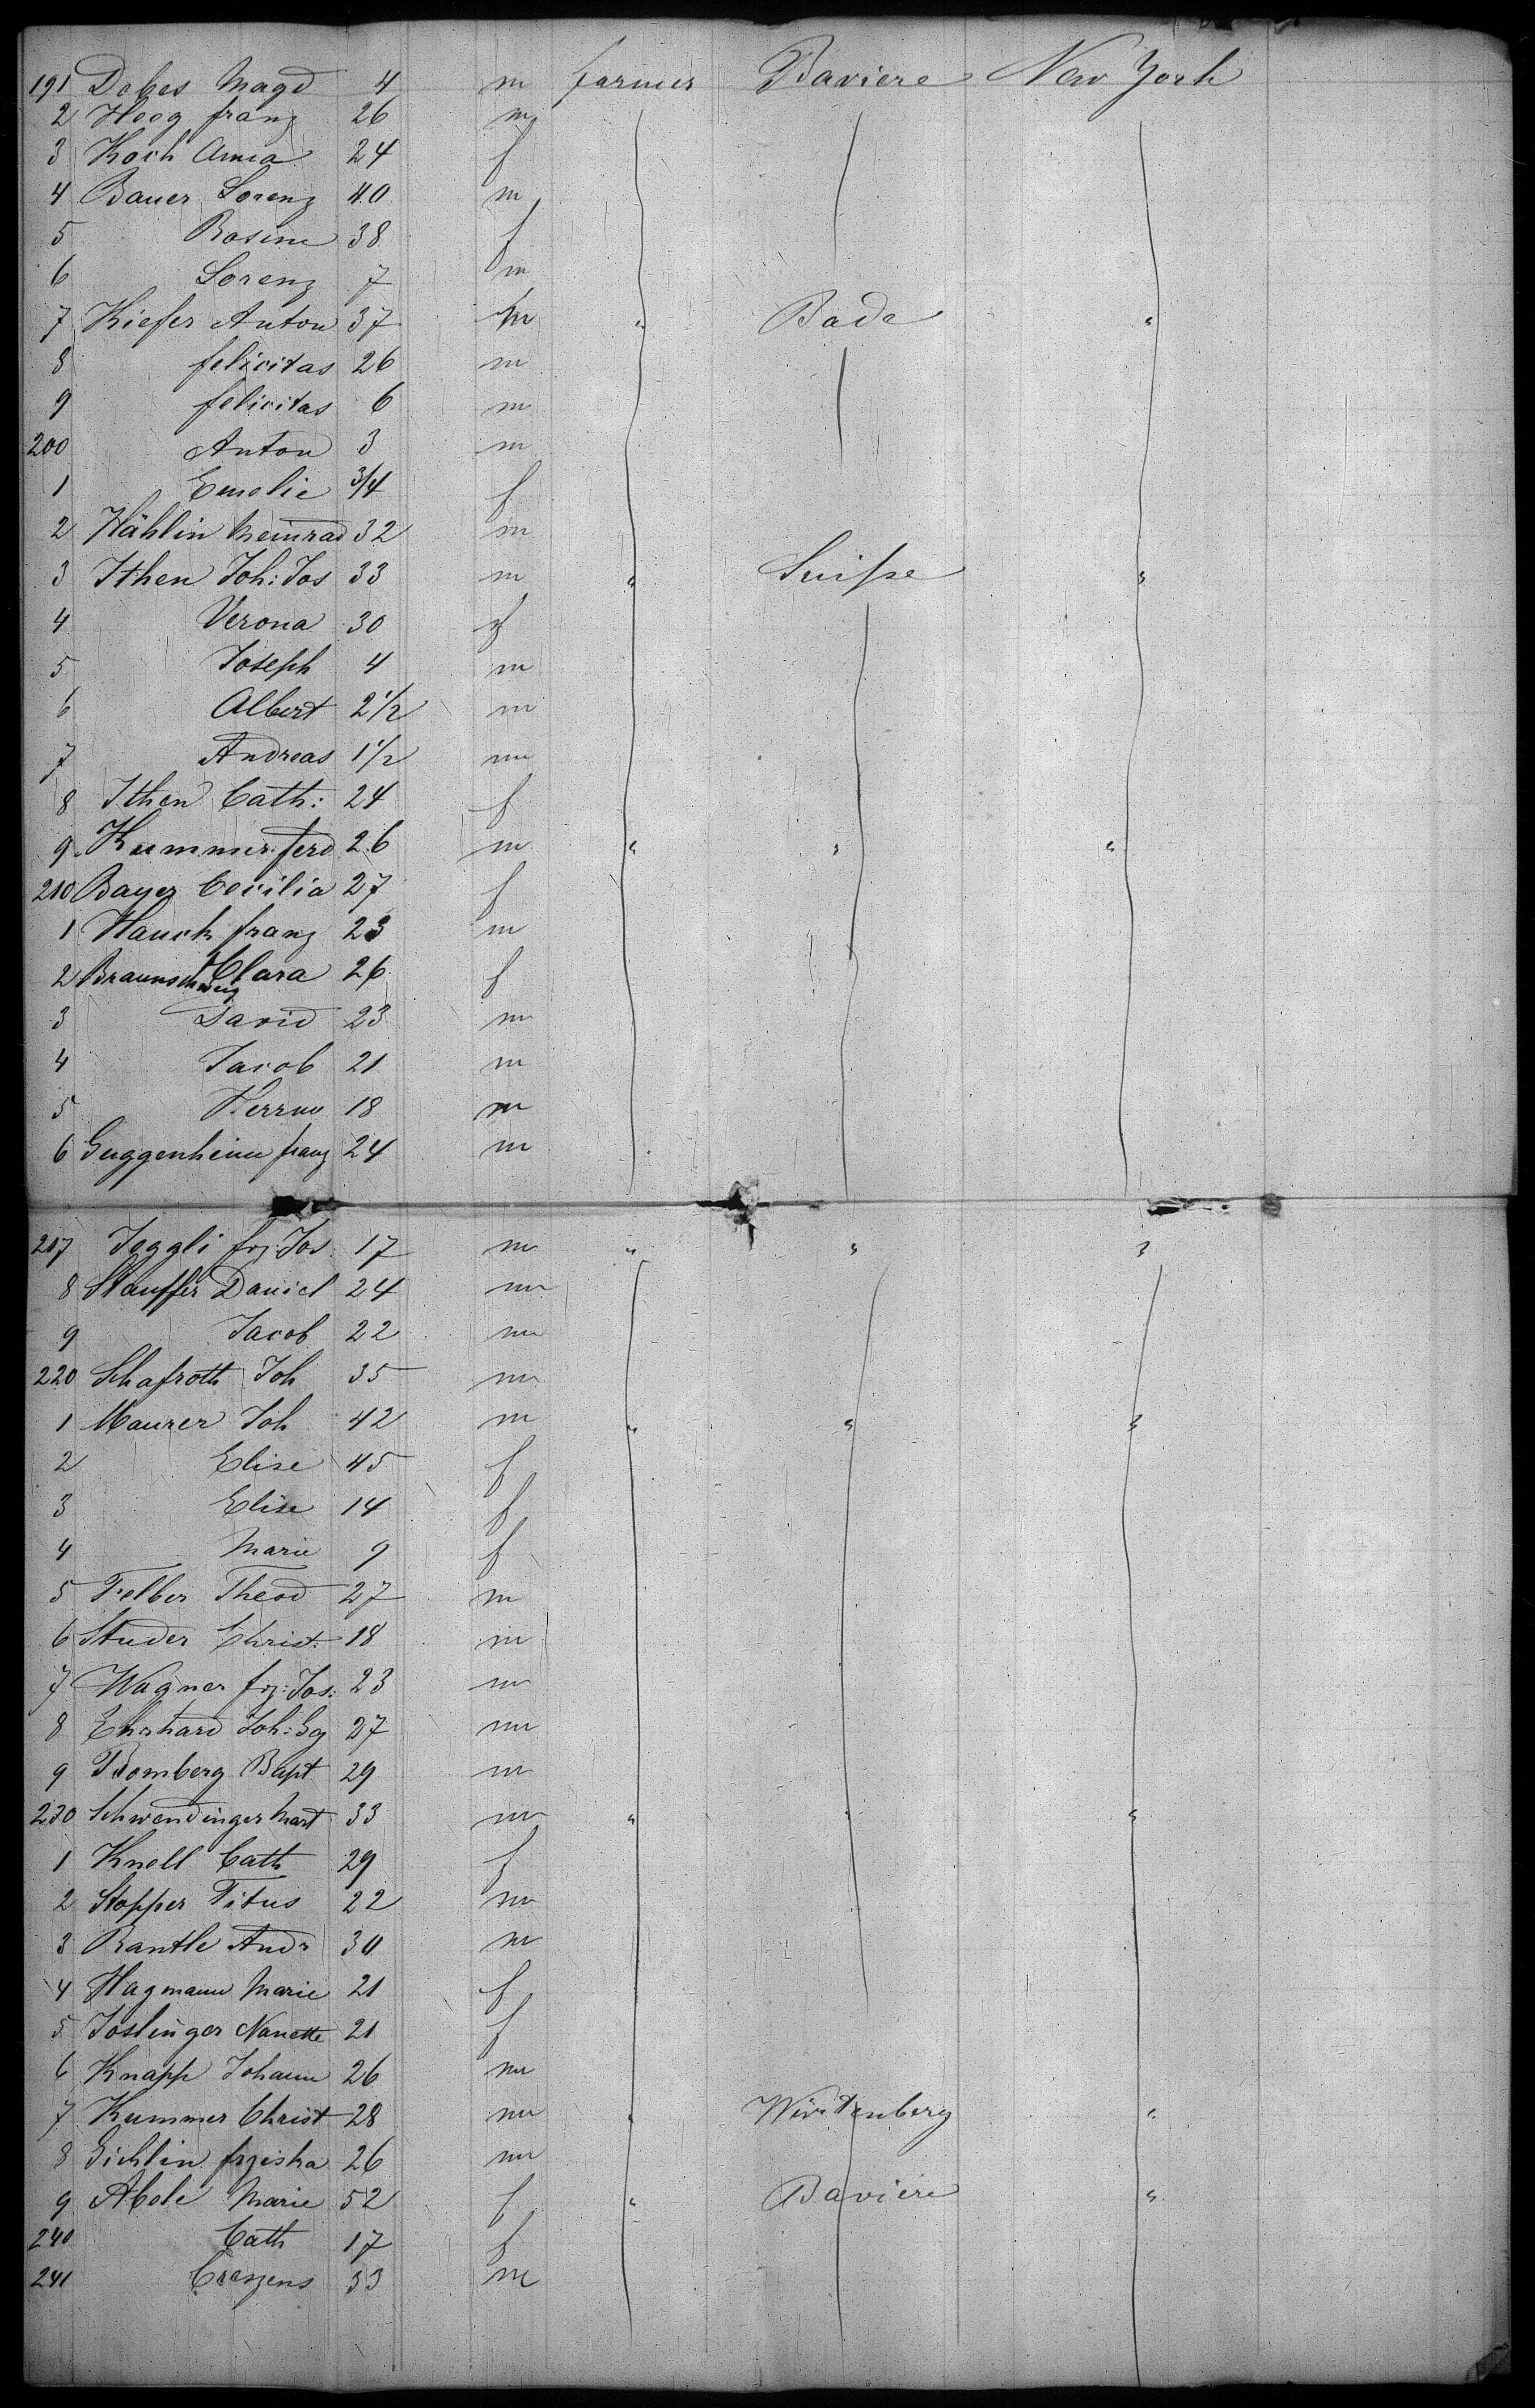 191 Debes Magd 4 m farmer Baviere New York
2 Hoog franz 26 m
3 Koch Anna 24 f
4 Bauer Lorenz 40 m
5 Rosine 38 f
6 Lorenz 7 m
7 Kiefer Anton 37 m " Bade "
8 felicitas 26 m
9 felicitas 6 m
200 Anton 3 m
1 Emelie 3/4 f
2 Hählin Meinrad 32 m
3 Ithen Joh: Jos 33 m " Suisse "
4 Verona 30 f
5 Joseph 4 m
6 Albert 2 1/2 m
7 Andreas 1 1/2 m
8 Ithen Cath: 24 f
9 Kummer ferd 26 m " " "
210 Bayer Cecilia 27 f
1 Hauck franz 23 m
2 Braunschweig Clara 26 f
3 David 23 m
4 Jacob 21 m
5 18 m
6 Guggenheim franz 24 m
217 Jeggli frz: Jos 17 m " " "
8 Stauffer Daniel 24 m
9 Jacob 22 m
220 Schafroth Joh 35 m
1 Maurer Joh 42 m " " "
2 Elise 45 f
3 Elise 14 f
4 Marie 9 f
5 Felber Theod 27 m
6 Studer Christ: 18 m
7 Wagner frz: Jos: 23 m
8 Ehrhard Joh: Gg 27 m
9 Bomberg Bapt 29 m
230 Schwendinger Mart 33 m " " "
1 Knell Cath 29 f
2 Stopper Titus 22 m
3 Rantle Andr 30 m
4 Hagmann Marie 21 f
5 Joslinger Nanette 21 f
6 Knapp Johann 26 m
7 Kummer Christ 28 m " Würtenberg "
8 Eichlin frziska 26 m
9 Abele Marie 52 f " Baviere "
240 Cath 17 f
241 Creszens 33 m